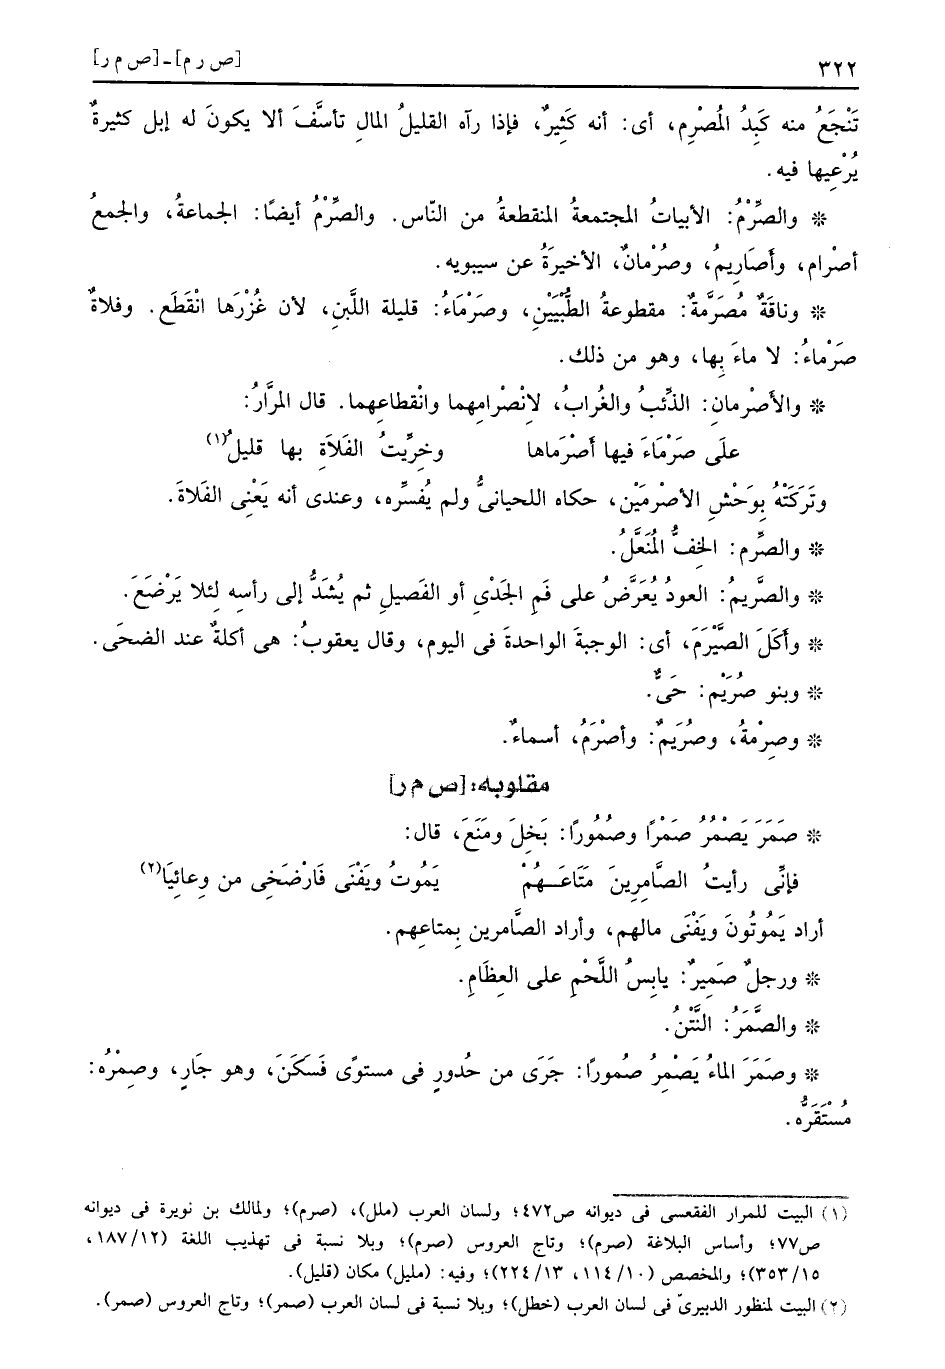 ٣٢٢ [ص ر م] - [ص م ر]
تَنْجَعُ منه كَبِدُ المُصْرِم، أى: أنه كَثِيرٌ، فإذا رآه القليلُ المالِ تأسَّفَ ألا يكونَ له إبل كثيرةٌ
يُرْعِيها فيه.
* والصِّرْمُ: الأبياتُ المجتمعةُ المنقطعةُ من النّاس. والصِّرْمُ أيضًا: الجماعةُ، والجمعُ
أصْرام، وأصَارِيمُ، وصُرْمانٌ، الأخيرَةُ عن سيبويه.
* وناقَةٌ مُصَرَّمةٌ: مقطوعةُ الطُّبْيَيْنِ، وصَرْمَاءُ: قليلة اللَّبنِ، لأن غُزْرَها انْقَطَع. وفلاةٌ
صَرْماءُ: لا ماءَ بِها، وهو من ذلك.
* والأصْرمان: الذِّئبُ والغُرابُ، لانْصرامِهما وانْقطاعِهما. قال المرَّارُ:
علَى صَرْمَاءَ فيها أَصْرَماها وخِرِّيتُ الفَلَاةِ بها قليلُ(١)
وتَرَكَتْهُ بِوَحْشِ الأصْرمَيْنِ، حكاه اللحيانىُّ ولم يُفسِّره، وعندى أنه يَعْنِى الفَلاةَ.
* والصِّرم: الخفُّ المُنَعَّلُ.
* والصَّرِيمُ: العودُ يُعَرَّضُ على فَمِ الجَدْىِ أو الفَصيلِ ثم يُشَدُّ إلى رأسِه لئلا يَرْضَعَ.
* وأَكَلَ الصَّيْرَمَ، أى: الوجبةَ الواحدةَ فى اليوم، وقال يعقوبُ: هى أكلةٌ عند الضحَى.
* وبنو صُرَيْم: حَىٌّ.
* وصِرْمةُ، وصُرَيمٌ: وأصْرَمُ، أسماءٌ.
مقلوبه: [ص م ر]
* صَمَرَ يَصْمُرُ صَمْرًا وصُمُورًا: بَخِلَ ومَنَعَ، قال:
فإنِّى رأيتُ الصَّامِرِينَ مَتَاعَـهُمْ يَمُوتُ ويَفْنَى فَارْضَخِى من وِعائِيَا(٢)
أراد يَمُوتُونَ ويَفْنَى مالهم، وأراد الصَّامرين بِمتاعِهم.
* ورجلٌ صَمِيرٌ: يابِسُ اللَّحْمِ على العِظَامِ.
* والصَّمَرُ: النَّتْنُ.
* وصَمَرَ الماءُ يَصْمِرُ صُمورًا: جَرَى من حُدورٍ فى مستوًى فَسَكَنَ، وهو جَارٍ، وصِمْرُه:
مُسْتَقَرُّه.
(١) البيت للمرار الفقعسى فى ديوانه ص٤٧٢؛ ولسان العرب (ملل)، (صرم)؛ ولمالك بن نويرة فى ديوانه
ص٧٧؛ وأساس البلاغة (صرم)؛ وتاج العروس (صرم)؛ وبلا نسبة فى تهذيب اللغة (١٨٧/١٢،
٣٥٣/١٥)؛ والمخصص (١١٤/١٠، ٢٢٤/١٣)؛ وفيه: (مليل) مكان (قليل).
(٢) البيت لمنظور الدبيرىّ فى لسان العرب (خطل)؛ وبلا نسبة فى لسان العرب (صمر)؛ وتاج العروس (صمر).